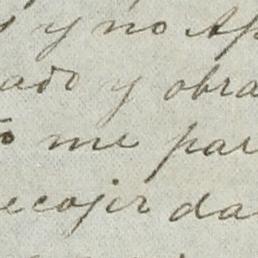 y no Ap
ado y obra
me par
ecojer da